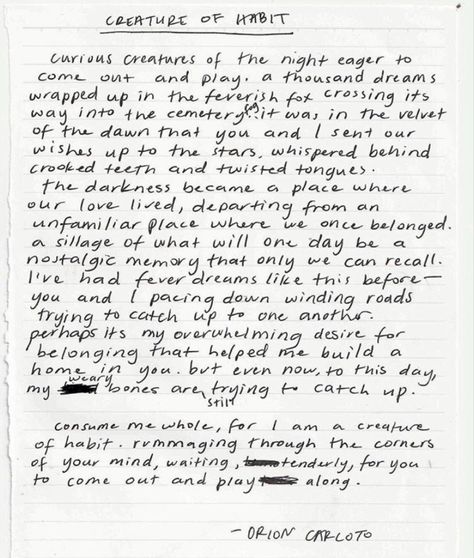 CREATURE OF HABIT
curious creatures of the night eager to
come out and play. a thousand dreams
wrapped up in the feverish fox crossing its
way into the cemetery fog. it was in the velvet
of the dawn that you and I sent our
wishes up to the stars, whispered behind
crooked teeth and twisted tongues.
the darkness became a place where
our love lived, departing from an
unfamiliar place where we once belonged.
a sillage of what will one day be a
nostalgic memory that only we can recall.
I've had fever dreams like this before—
you and I pacing down winding roads
trying to catch up to one another.
perhaps its my overwhelming desire for
belonging that helped me build a
home in you. but even now, to this day,
my weary bones are still trying to catch up.
consume me whole, for I am a creature
of habit. rummaging through the corners
of your mind, waiting, tenderly, for you
to come out and play along.
— ORION CARLOTO